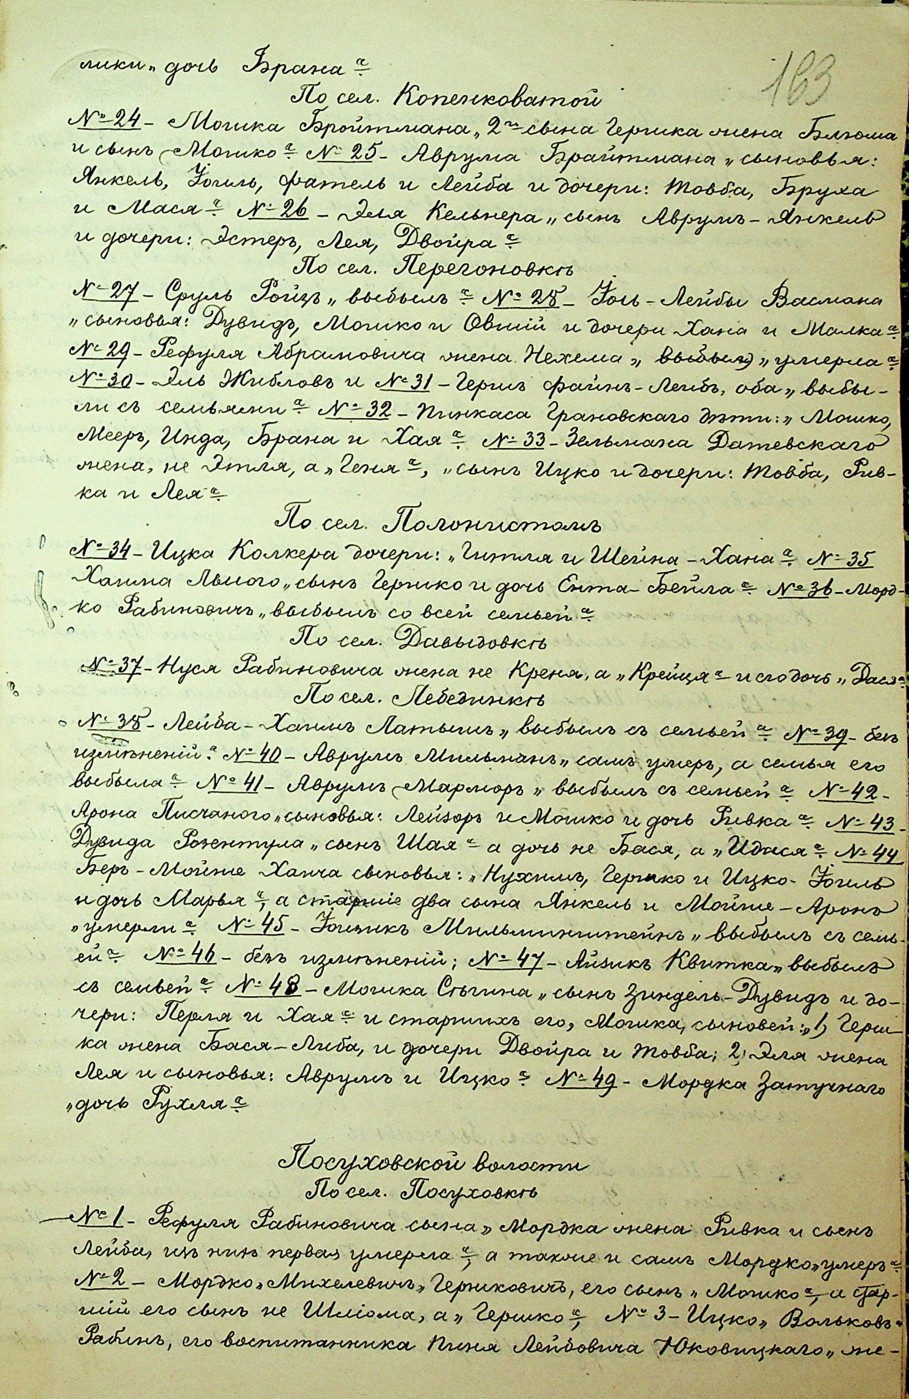 лики„ дочь Брана "
163
По сел. Копенковатой
№ 24 - Мошка Бройтмана, „2го сына Гершка жена Блюма
и сынъ Мошко" № 25 - Аврума Брайтмана „сыновья:
Янкель, Іойль, Фатель и Лейба и дочери: Товба, Бруха
и Мася" № 26 - Эля Кельнера „сынъ Аврумъ - Янкель
и дочери: Эстеръ, Лея, Двойра"
По сел. Перегоновкѣ
№ 27 - Сруль Ройзъ „выбылъ" № 28 - Іось - Лейбы Васмана
„сыновья: Дувидъ, Мошко и Овшій и дочери Хана и Малка"
№ 29 - Рефуля Абрамовича жена Нехема „ „умерла"
№ 30 - Эль и № 31 - Гершъ Файнъ - Лейбъ, оба „выбы-
ли съ семьями" № 32 - Пинкаса Грановскаго дѣти: „Мошко,
Мееръ, Инда, Брана и Хая" № 33 - Зельмана Дашевскаго
жена, не Этля, а „Геня", „сынъ Ицко и дочери: Товба, Рив-
ка и Лея"
По сел. Полонистомъ
№ 34 - Ицка Колкера дочери: „Гитля и Шейна - Хана" № 35
Хаима Львого „сынъ Гершко и дочь Ента - Бейла" № 36 - Морд-
ко Рабиновичъ „выбылъ со всей семьей"
По сел. Давыдовкѣ
№ 37 - Нуся Рабиновича жена не Креня, а „Крейця" и его дочь „Дася"
По сел. Лебединкѣ
№ 38 - Лейба - Хаимъ Латышъ „выбылъ съ семьей" № 39 - безъ
измѣненій. № 40 - Аврумъ Мильманъ „самъ умеръ, а семья его
выбыла" № 41 - Аврумъ Марморъ „выбылъ съ семьей" № 42 -
Арона Писчаного „сыновья: Лейзоръ и Мошко и дочь Ривка" № 43 -
Дувида Розентула „сынъ Шая" а дочь не Бася, а „Идася" № 44
Беръ - Мойше Ханча сыновья: „Нухимъ, Гершко и Ицко - Іойль
и дочь Марья", а старшіе два сына Янкель и Мойше - Аронъ
„умерли" № 45 - Іойзикъ Мильминштейнъ „выбылъ съ семь-
ей" № 46 - безъ измѣненій; № 47 - Айзикъ Квитка „выбылъ
съ семьей" № 48 - Мошка Сѣчина „сынъ Зиндель - Дувидъ и до-
чери: Перля и Хая" и старшихъ его, Мошка, сыновей: „1) Герш-
ка жена Бася - Либа, и дочери Двойра и Товба; 2) Эля жена
Лея и сыновья: Аврумъ и Ицко" № 49 - Мордка Затучнаго
„дочь Рухля"
Посуховской волости
По сел. Посуховкѣ
№ 1 - Рефуля Рабиновича сына „Мордка жена Ривка и сынъ
Лейба, изъ нихъ первая умерла", а также и самъ Мордко „умеръ"
№ 2 - Мордко „Михелевичъ „Гершковичъ, его сынъ „Мошко", а стар-
шій его сынъ не Шліома, а „Гершко", № 3 - Ицко „Вольковъ"
Рабинъ, его воспитанника Пиня Лейбовича Юковицкаго „же-